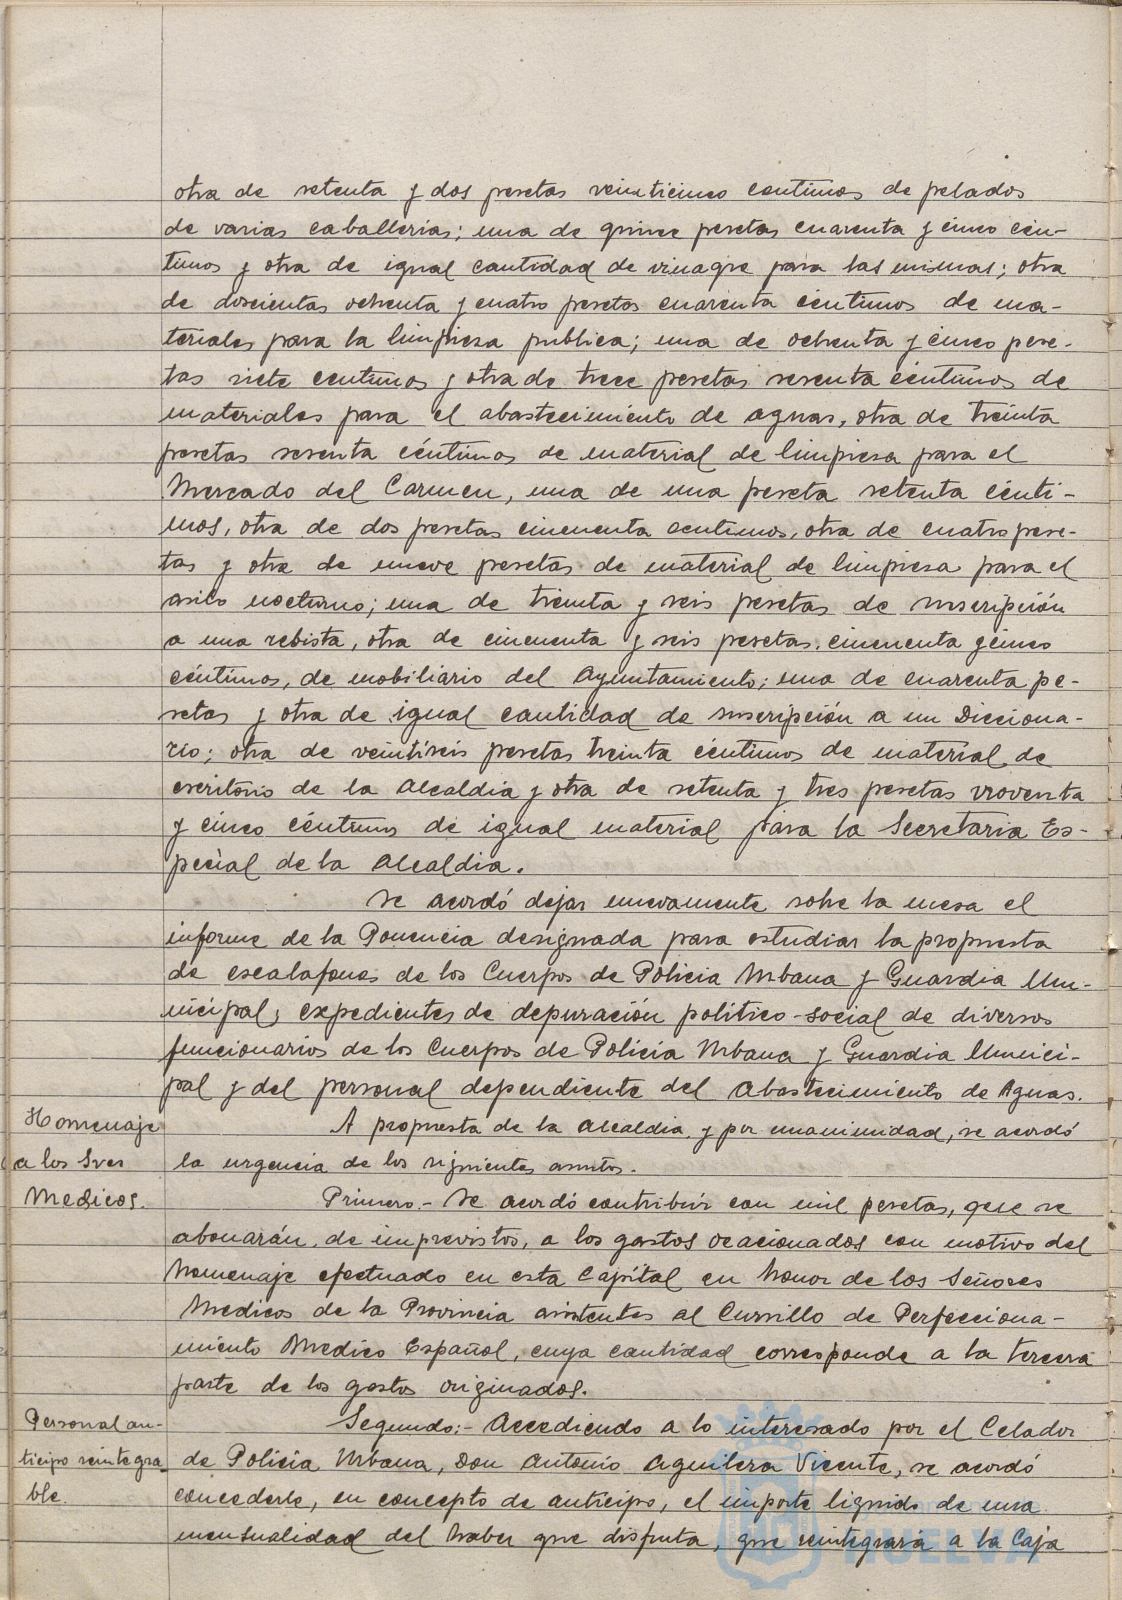 otra de setenta y dos pesetas veinticinco centimos de pelados
de varias caballerias; una de quince pesetas cuarenta y cinco cén-
timos y otra de igual cantidad de vinagre para las mismas; otra
de doscientas ochenta y cuatro pesetas cuarenta céntimos de ma-
teriales para la limpieza publica; una de ochenta y cinco pese-
tas siete centimos y otra de trece pesetas sesenta céntimos de
materiales para el abastecimiento de aguas, otra de treinta
pesetas sesenta céntimos de material de limpiesa para el
Mercado del Carmen, una de una peseta setenta cénti-
mos, otra de dos pesetas cincuenta centimos, otra de cuatro pese-
tas y otra de nueve pesetas de material de limpiesa para el
asilo nocturno; una de treinta y seis pesetas de suscripción
a una rebista, otra de cincuenta y seis pesetas cincuenta y cinco
céntimos, de mobiliario del Ayuntamiento; una de cuarenta pe-
setas y otra de igual cantidad de suscripción a un Dicciona-
rio; otra de veintiseis pesetas treinta céntimos de material de
escritorio de la Alcaldia y otra de setenta y tres pesetas noventa
y cinco céntimos de igual material para la Secretaria Es-
pecial de la Alcaldia.
Se acordó dejar nuevamente sobre la mesa el
informe de la Ponencia designada para estudiar la propuesta
de escalafones de los Cuerpos de Policia Urbana y Guardia Mu-
nicipal, expedientes de depuración politico-social de diversos
funcionarios de los Cuerpos de Policia Urbana y Guardia Munici-
pal y del personal dependiente del Abastecimiento de Aguas.
Homenaje
a los Sres
Medicos.
A propuesta de la Alcaldia y por unanimidad, se acordó
la urgencia de los siguientes asuntos.
Primero.- Se acordó contribuir con mil pesetas, que se
abonarán de imprevistos, a los gastos ocacionados con motivo del
homenaje efectuado en esta Capital en honor de los Señores
Medicos de la Provincia asistentes al Cursillo de Perfecciona-
miento Medico Español, cuya cantidad corresponde a la tercera
parte de los gastos originados.
Personal an-
ticipo reintegra-
ble.
Segundo:- Accediendo a lo interesado por el Celador
de Policia Urbana, Don Antonio Aguilera Vicente, se acordó
concederle, en concepto de anticipo, el importe liquido de una
mensualidad del haber que disfruta, que reintegrará a la Caja
HUELVA